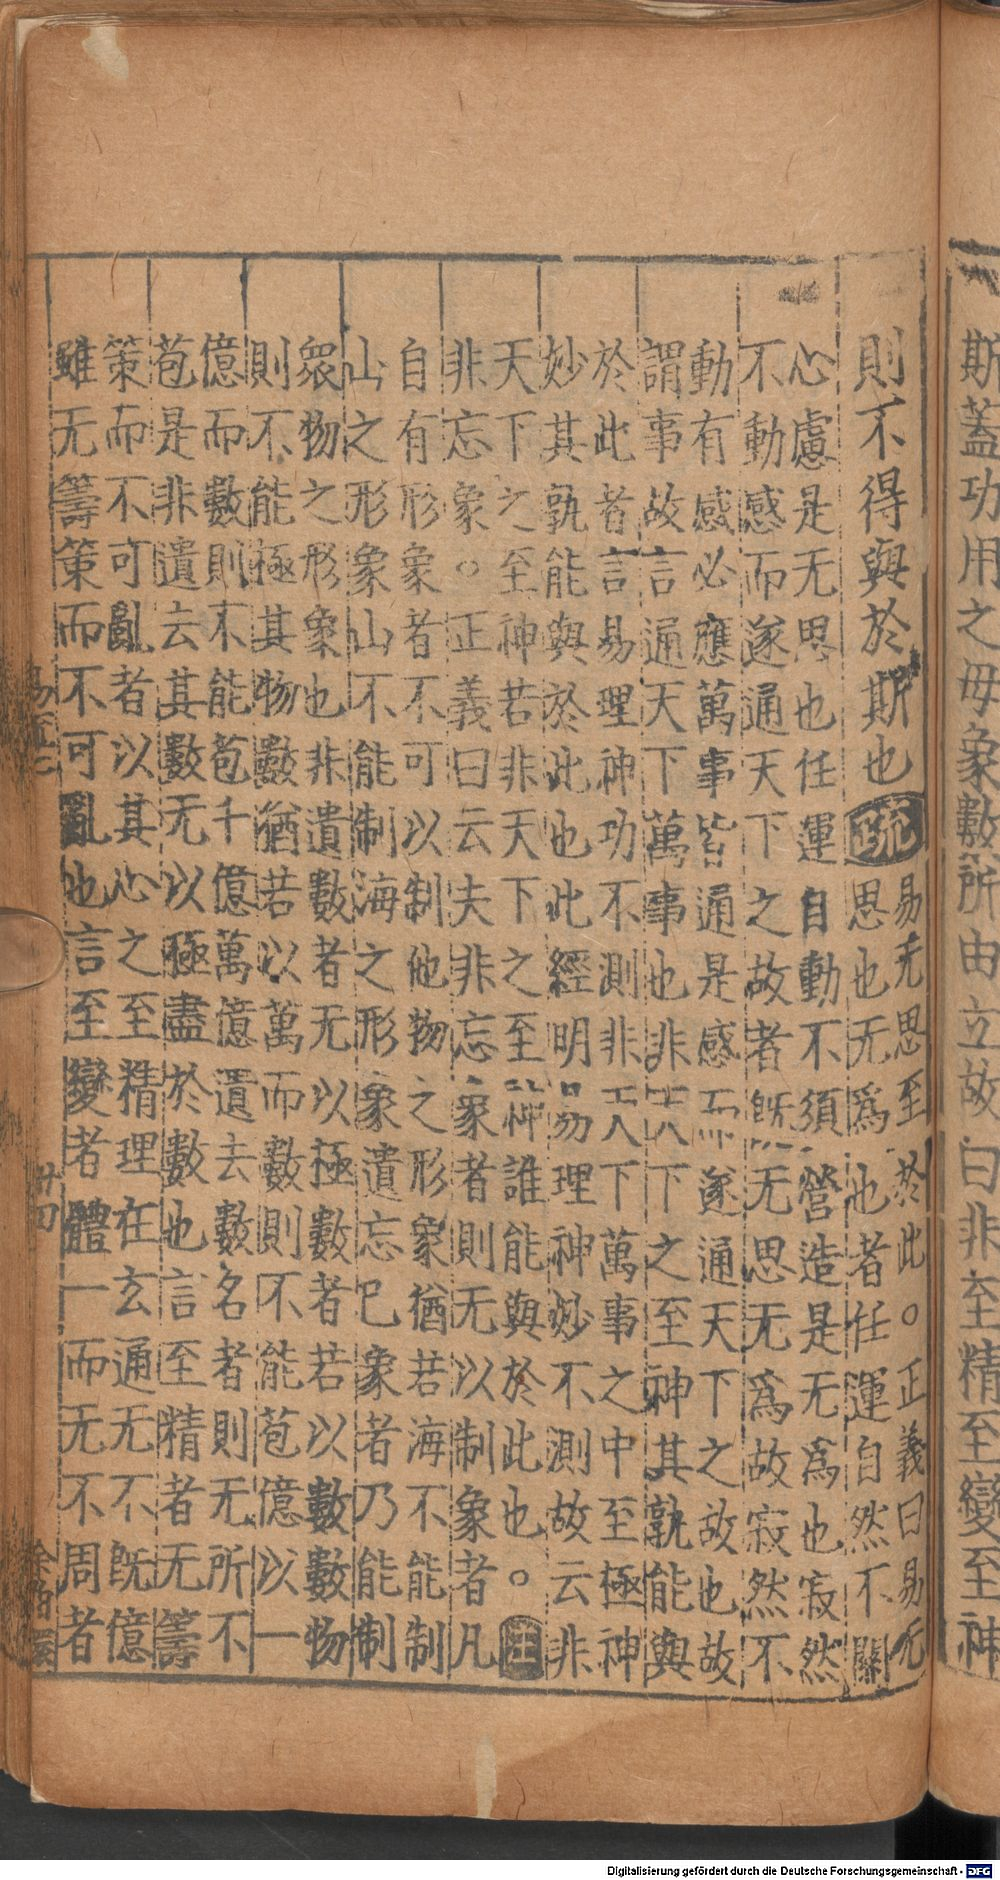 斯蓋功用之毋象數所由立故曰非至精至變至神
則不得與於斯也疏易无思至於此。正義曰易无
思也无爲也者任運自然不關
心慮是无思也任運自動不須營造是无爲也寂然
不動感而遂通天下之故者既无思无爲故寂然不
動有感必應萬事皆通是感而遂通天下之故也故
謂事故言通天下萬事也非天下之至神其孰能與
於此者言易理神功不測非天下萬事之中至極神
妙其孰能與於此也此經明易理神妙不測故云非
天下之至神若非天下之至神誰能與於此也。注
非忘象。正義曰云夫非忘象者則无以制象者凡
自有形象者不可以制他物之形象猶若海不能制
山之形象山不能制海之形象遺忘已象者乃能制
衆物之形象也非遺數者无以極數者若以數數物
則不能極其物數猶若以萬而數則不能苞億以一
億而數則不能苞千億萬億遺去數名者則无所不
苞是非遺云其數无以極盡於數也言至精者无籌
策而不可亂者以其心之至精理在玄通无不既億
雖无籌策而不可亂也言至變者體一而无不周者
廿四
Digitalisierung gefördert durch die Deutsche Forschungsgemeinschaft - DFG